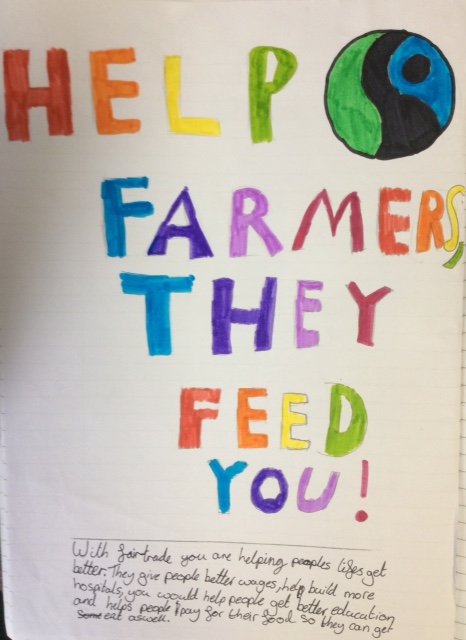 HELP
FARMERS,
THEY
FEED
YOU!
With fairtrade you are helping peoples lifes get
better. They give people better wages, help build more
hospitals, you would help people get better education
and helps people pay for their food so they can get
some eat aswell.